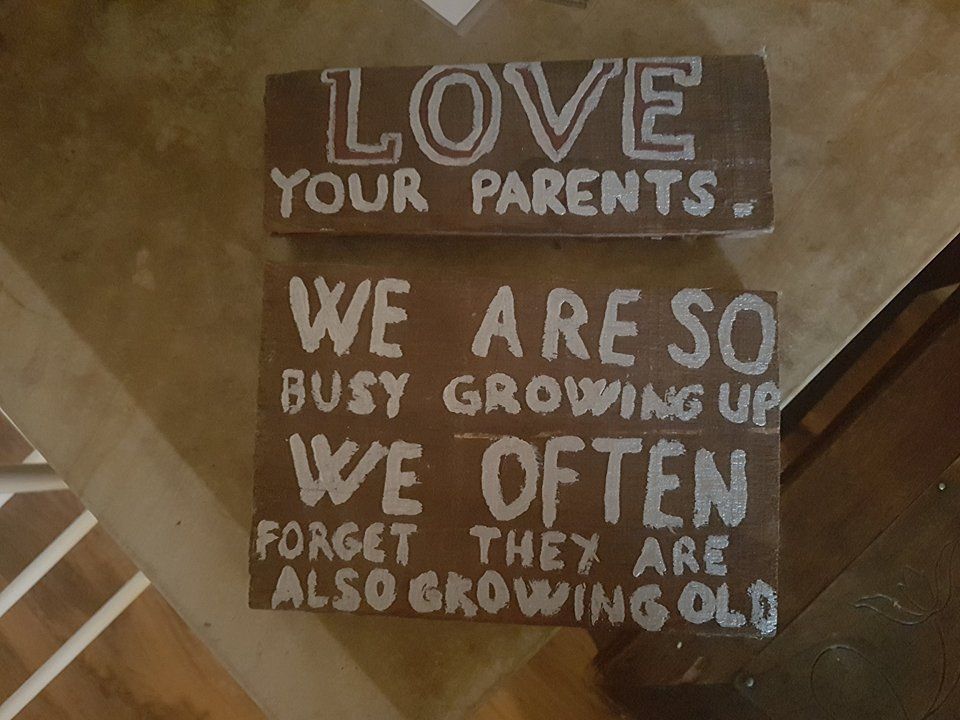 LOVE
YOUR PARENTS.
WE ARE SO
BUSY GROWING UP
WE OFTEN
FORGET THEY ARE
ALSO GROWING OLD